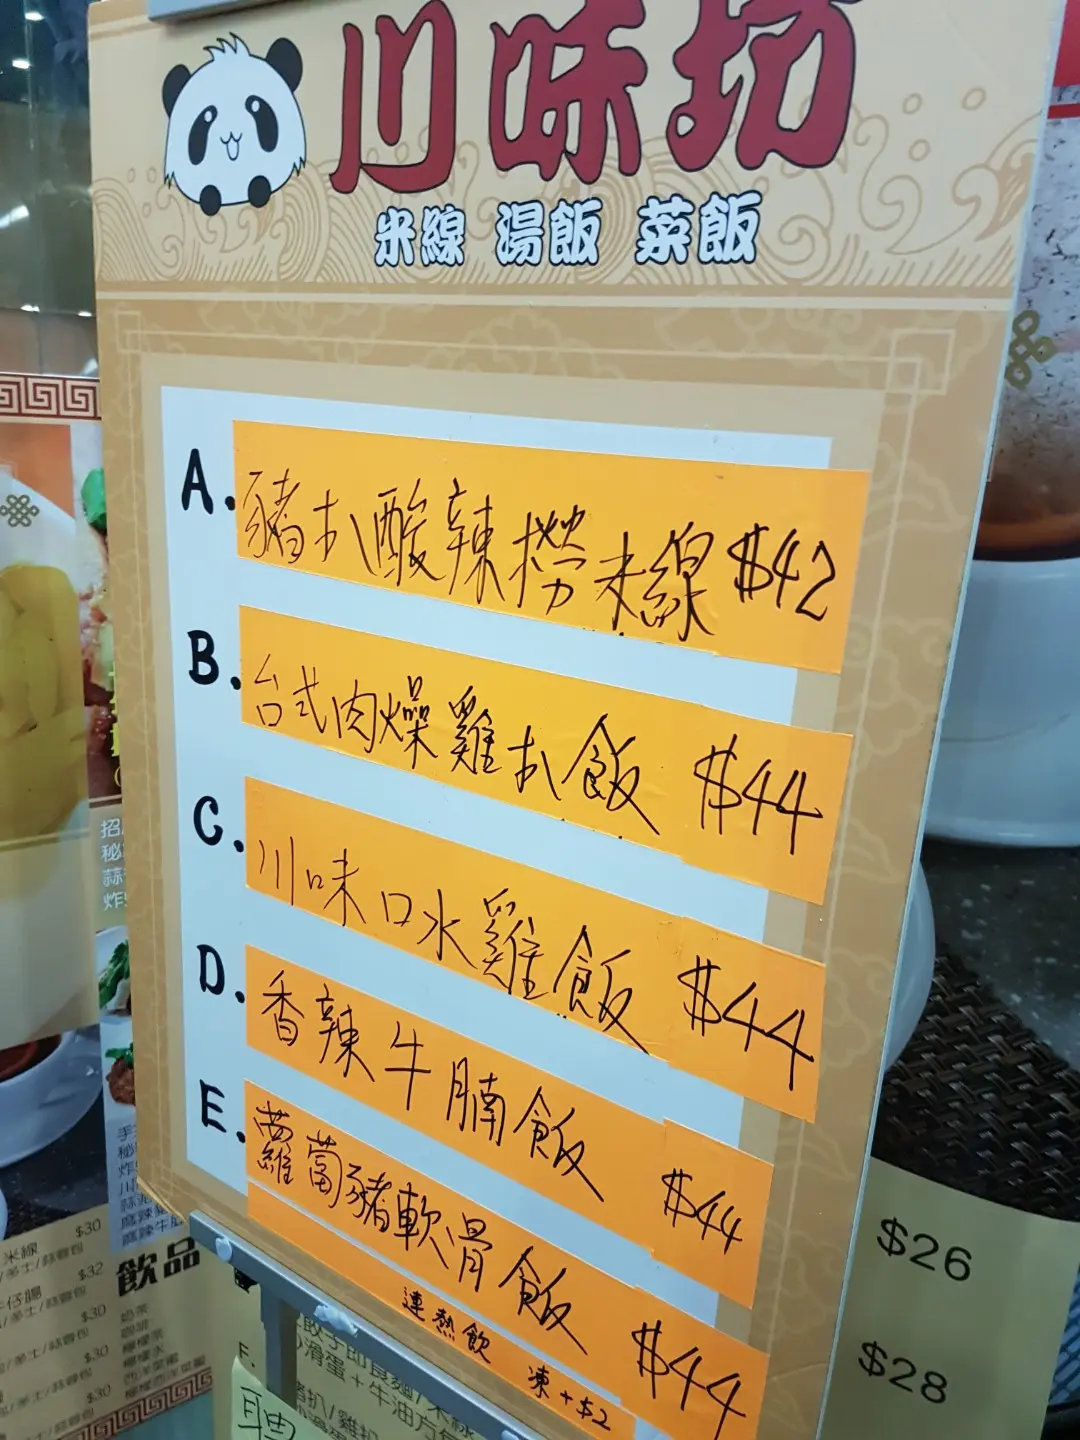 川味坊
米線 湯飯 菜飯
A. 豬扒酸辣撈米線 $42
B. 台式肉燥雞扒飯 $44
C. 川味口水雞飯 $44
D. 香辣牛腩飯 $44
E. 蘿蔔豬軟骨飯 $44
連熱飲 凍+$2
米線 $30
$32
$30
$30
$30
飲品
奶茶
咖啡
檸檬茶
檸檬水
$26
$28
F.